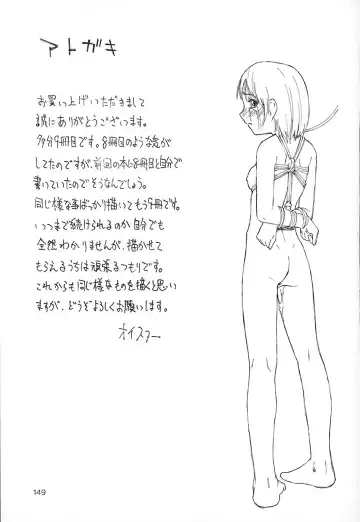 アトガキ
お買い上げいただきまして
誠にありがとうございます。
多分9冊目です。8冊目のような気が
してたのですが、前回の本に8冊目と自分で
書いていたのでそうなんでしょう。
同じ様な事ばっかり描いてもう9冊です。
いつまで続けられるのか自分でも
全然わかりませんが、描かせて
もらえるうちは頑張るつもりです。
これからも同じ様なものを描くと思い
ますが、どうぞよろしくお願いします。
オイスター
149